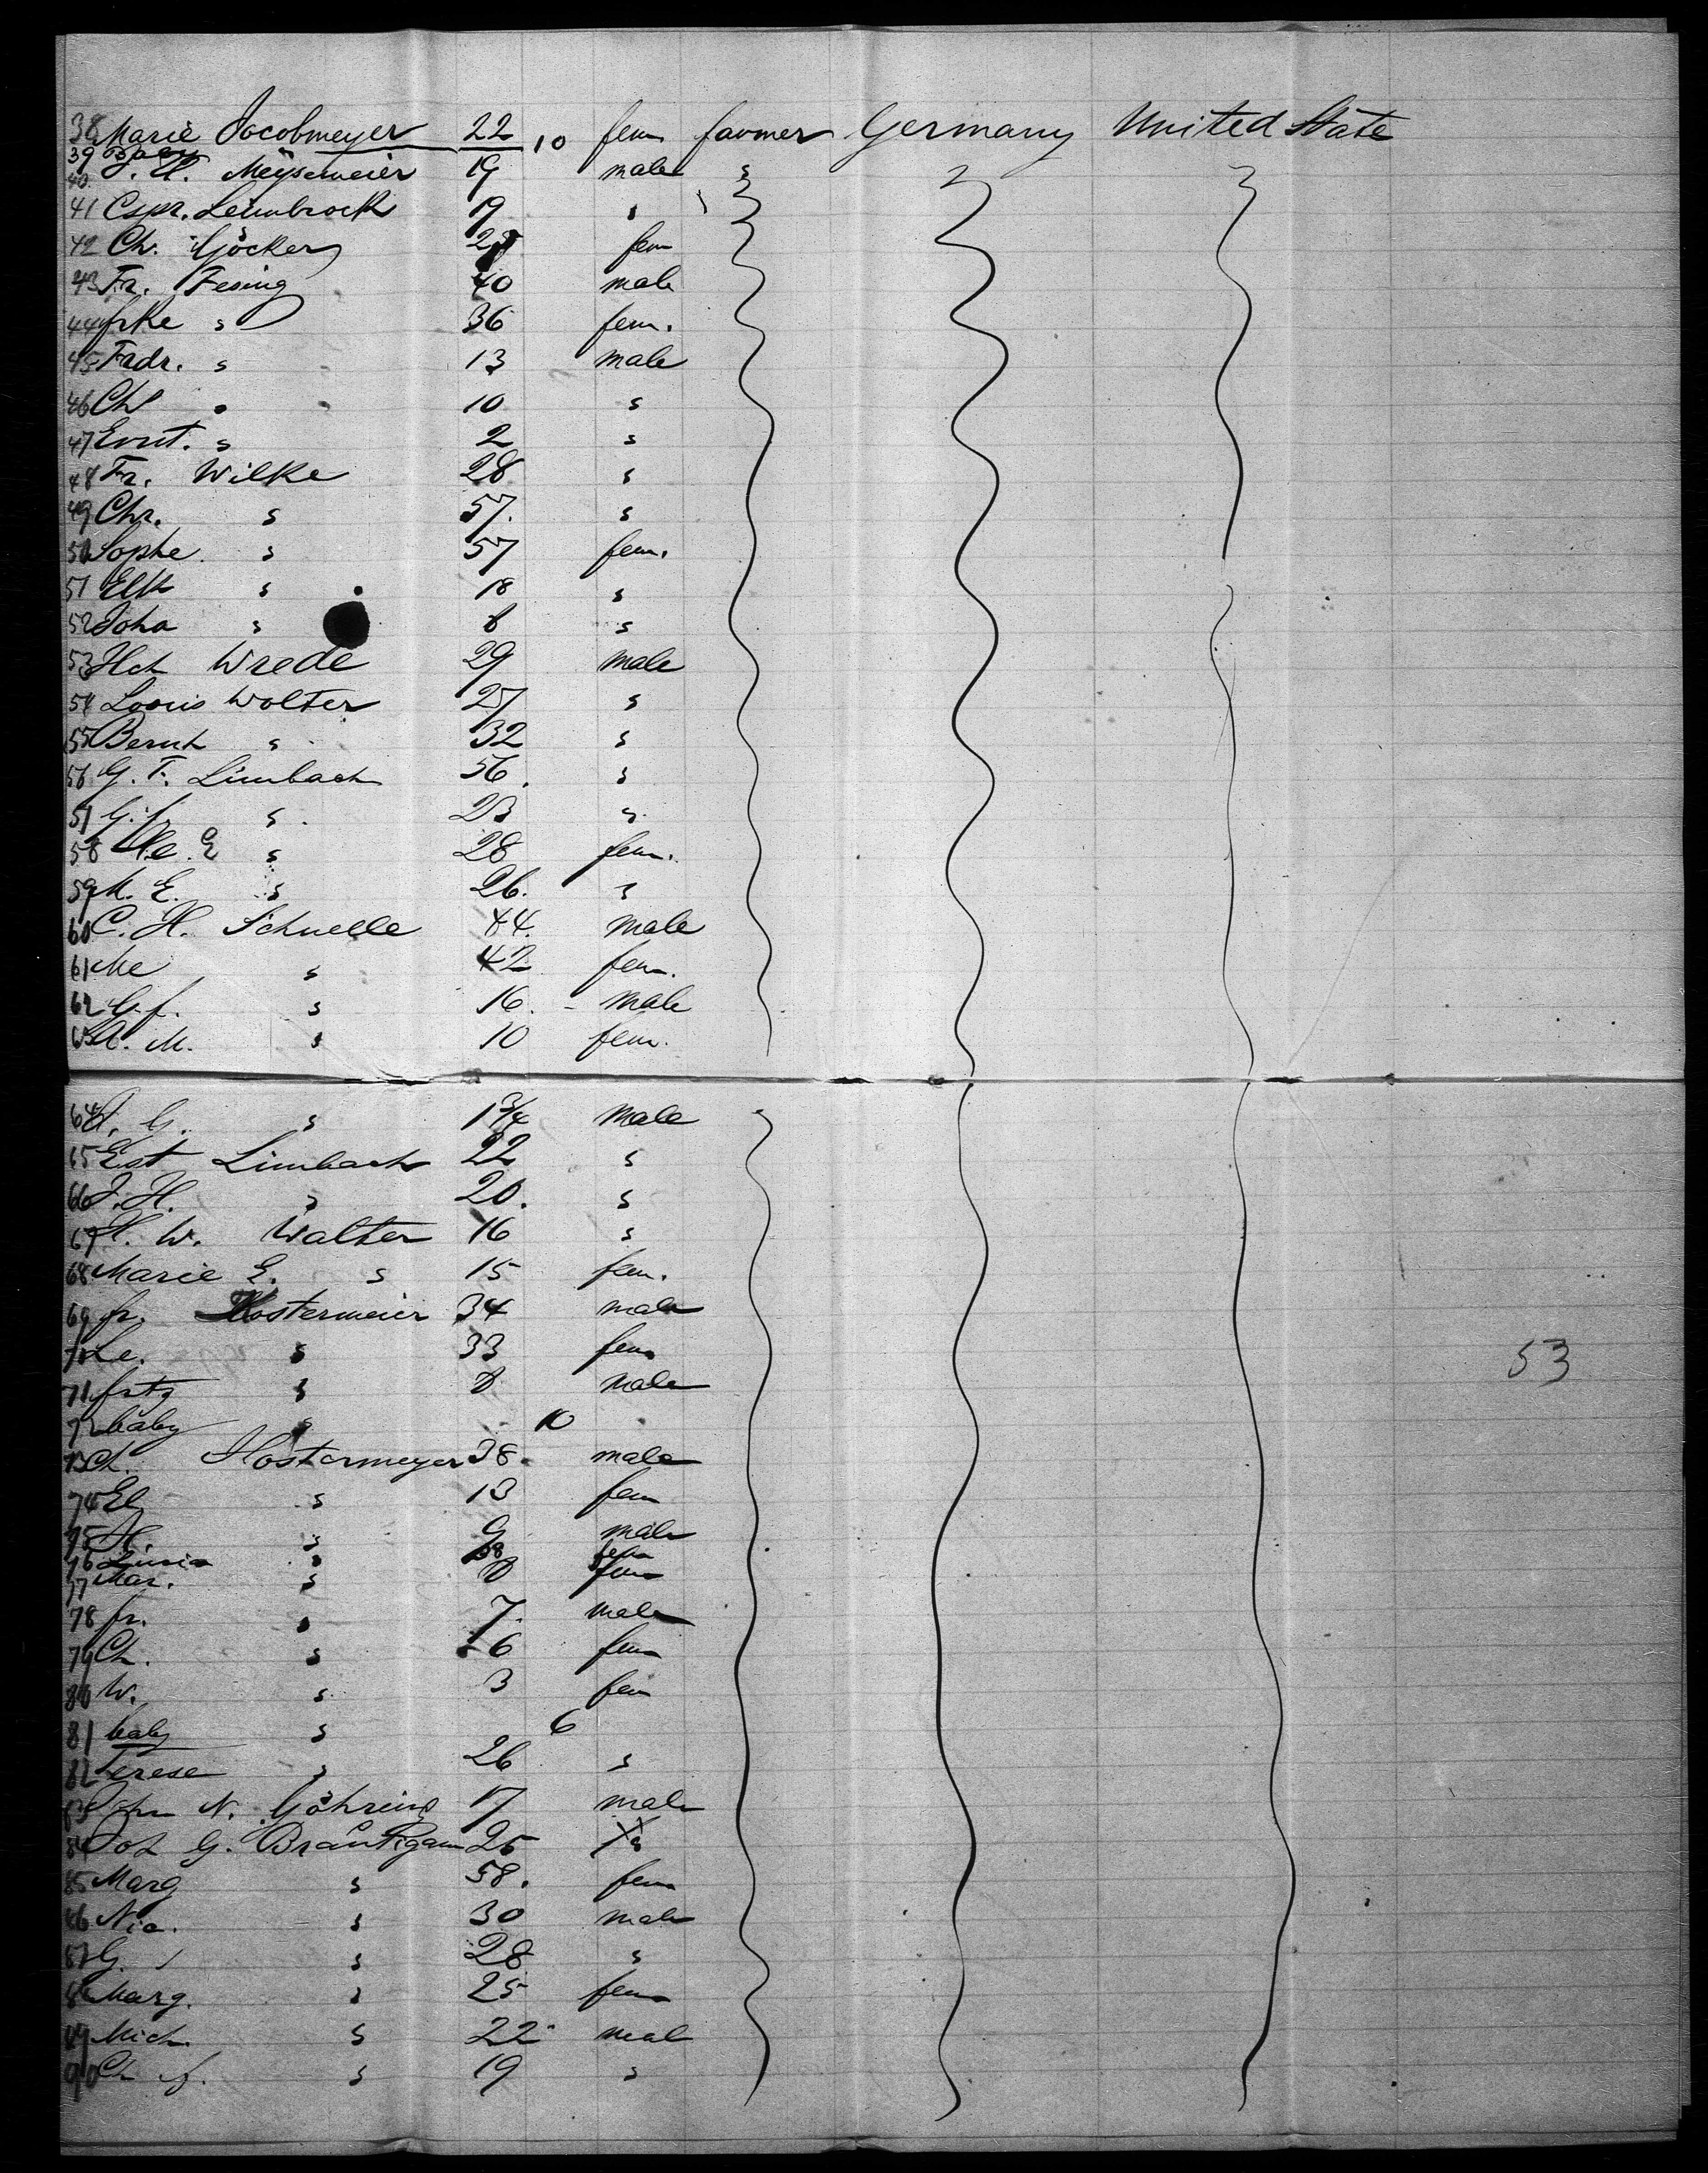 38 Marie Jacobmeyer 22 fem farmer Germany United State
39 Baby 10
40 J. H. Meijsemeier 19 male s
41 Cspr. Leimbrock 19 s
42 Ch. Göcker fem
43 Fr. Fesing 40 male
44 frke s 36 fem.
45 Fredr. s 13 male
46 Ch s 10 s
47 Ernt. s 2 s
48 Fr. Wilke 28 s
49 Chr. s 57. s
50 Sophe s 57 fem.
51 Elk s 18 s
52 Joha s 8 s
53 Hch Wrede 29 male
54 Louis Wolter 27 s
55 Bernh s 32 s
56 G. F. Limbach 56. s
57 G. f. s 23 s
58 E s 28 fem.
59 M. E. s 26. s
60 C. H. Schnelle 44. male
61 Me s 42 fem.
62 G. f. s 16. male
63 A. M. s 10 fem.
64 G. s 1 3/4 male
65 Est Limbach 22 s
66 J. H. s 20. s
67 H. W. Walter 16 s
68 Marie E. s 15 fem.
69 fr. Klostermeier 34 male
70 Le. s 33 fem
71 fritz s 8 male
53
72 baby s 10
73 Ch. Hostermeyer 38. male
74 El s 13 fem
75 H. s 9 male
76 s 38 fem
77 Mar. s 8 fem
78 fr. s 7. male
79 Ch. s 6 fem
80 W. s 3 fem
81 baby s 6
82 Terese s 26 s
83 John N. Göhring 17 male
84 Joh G. Bräutigam 25 s
85 Marg s 58. fem
86 Nic. s 30 male
87 G. s 28 s
88 Marg. s 25 fem
89 Mich. s 22 mal
90 Ch f. s 19 s